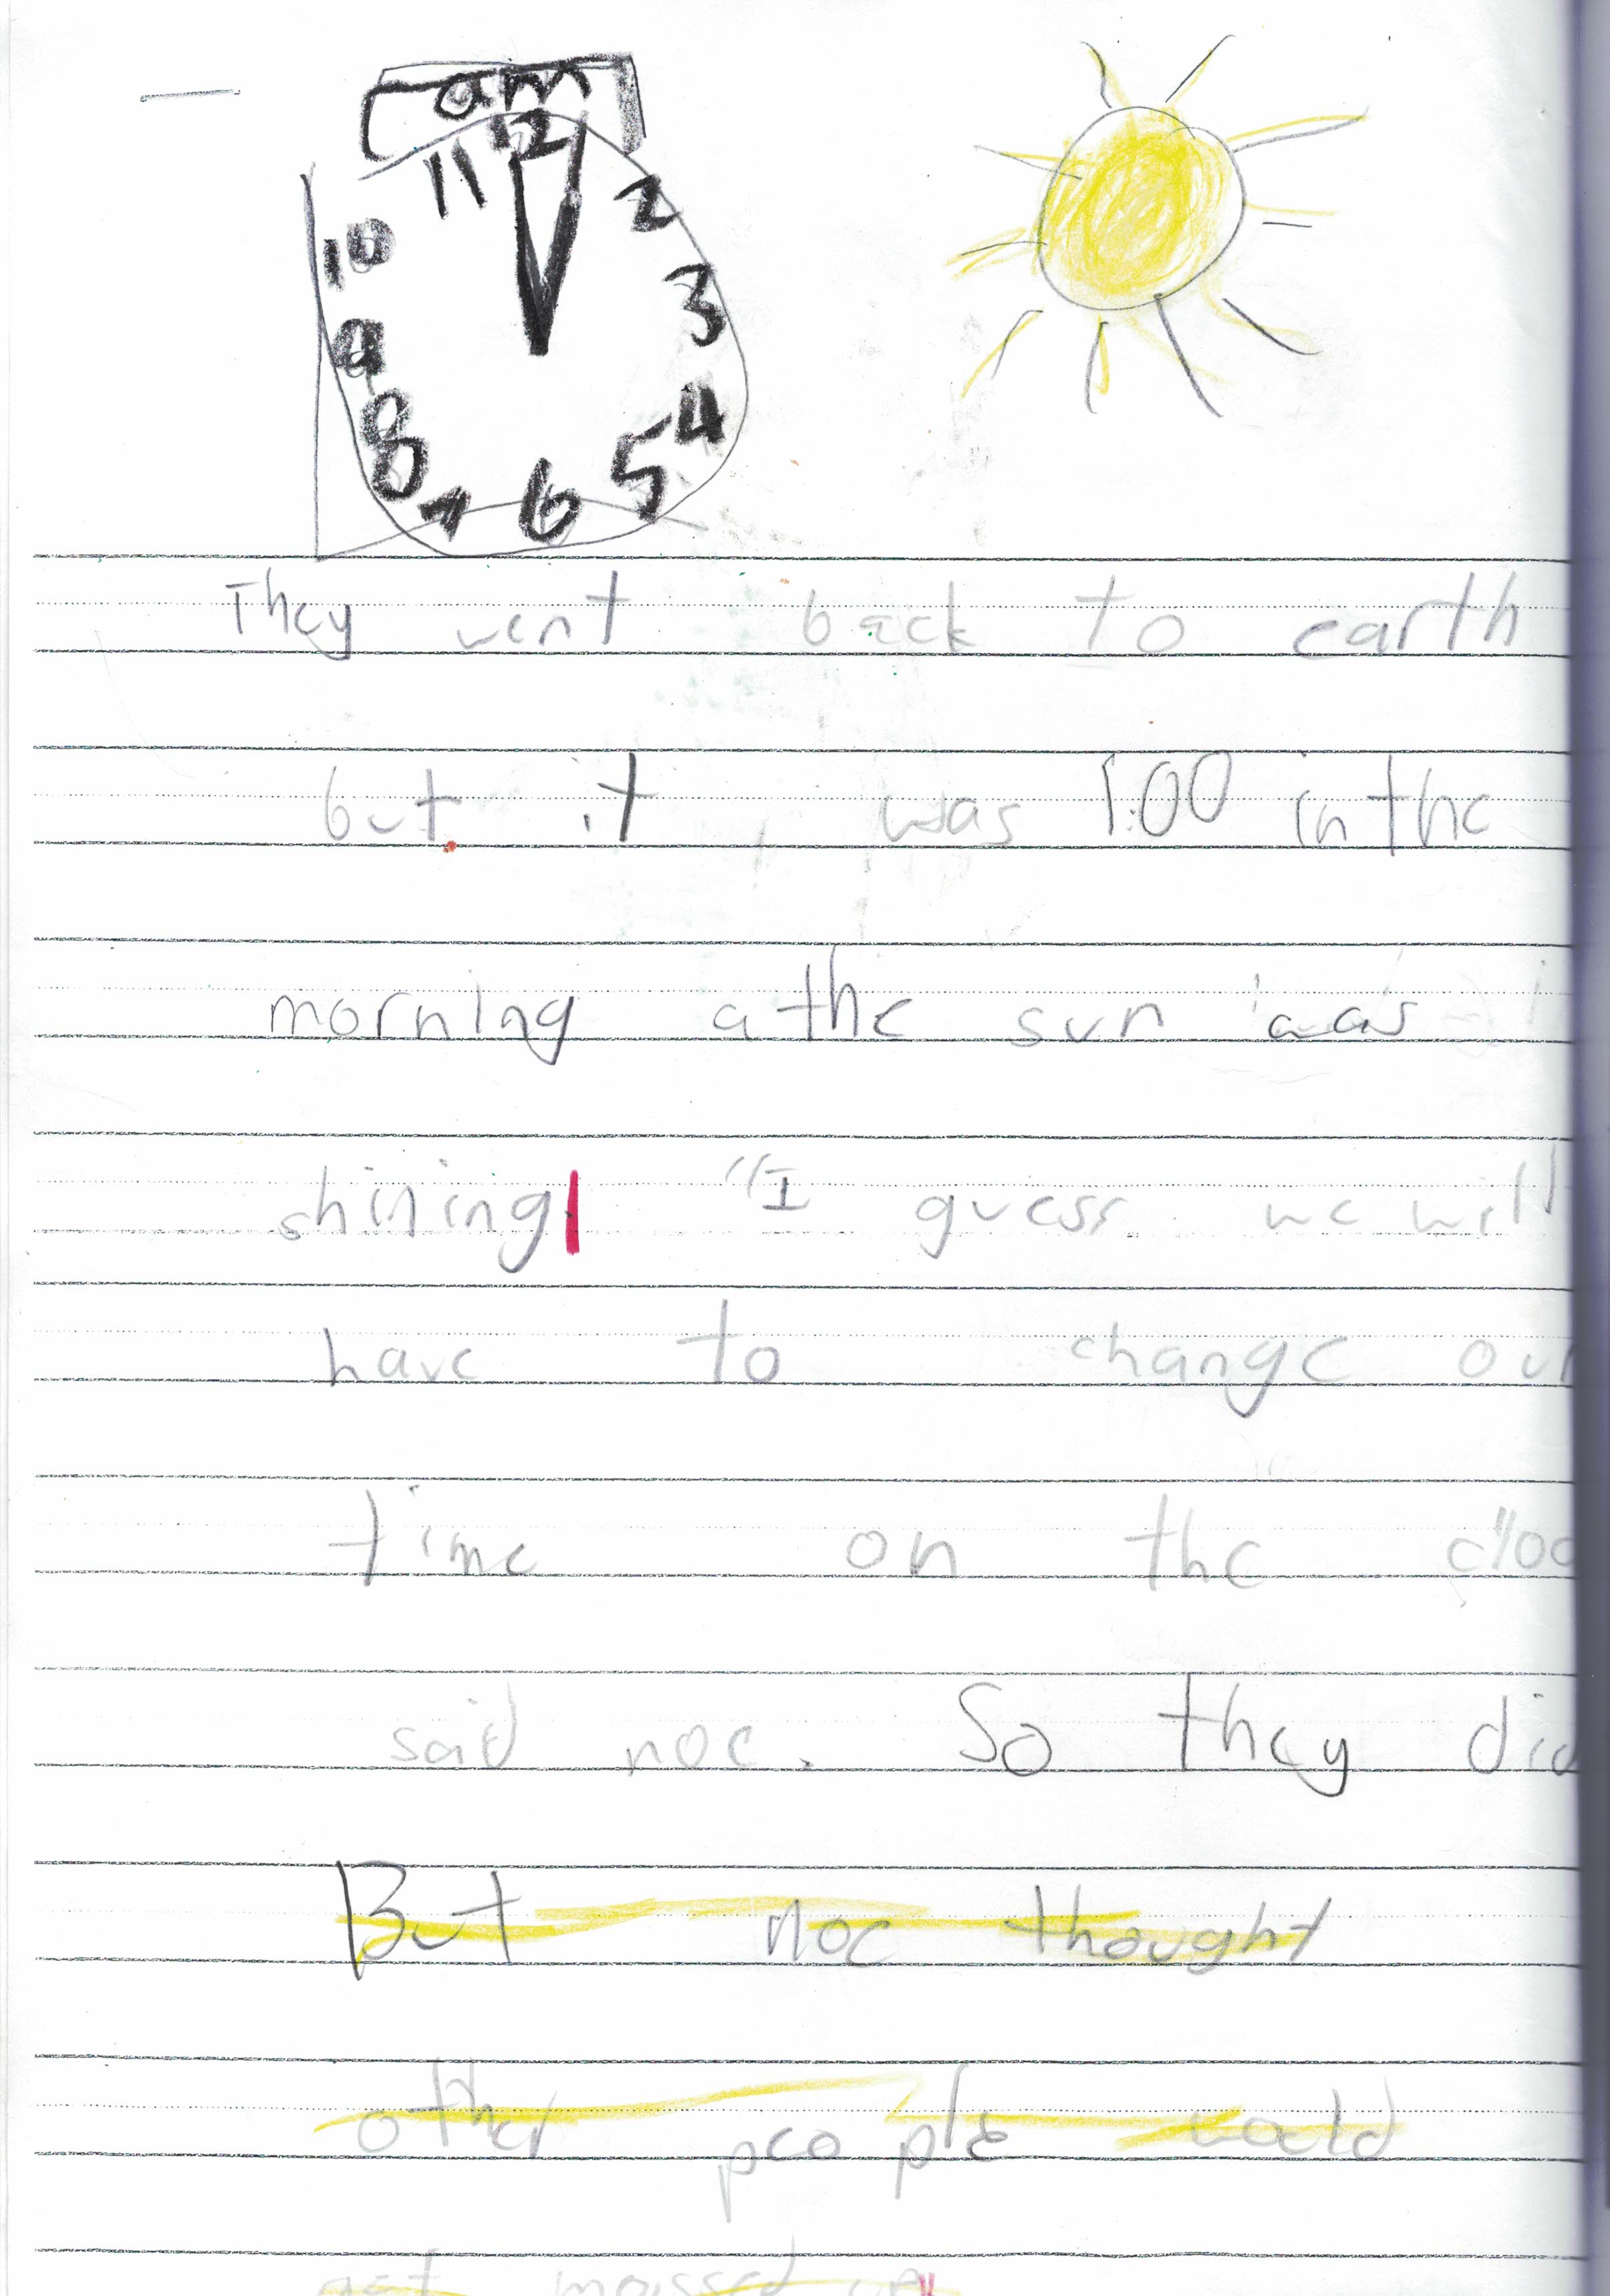 am
12
11 2
10 3
9
8 4
7 6 5
They went back to earth
but it was 1:00 in the
morning a the sun was
shining "I guess we will
have to change our
time on the
said noe. So they did
But noe thought
other people would
got